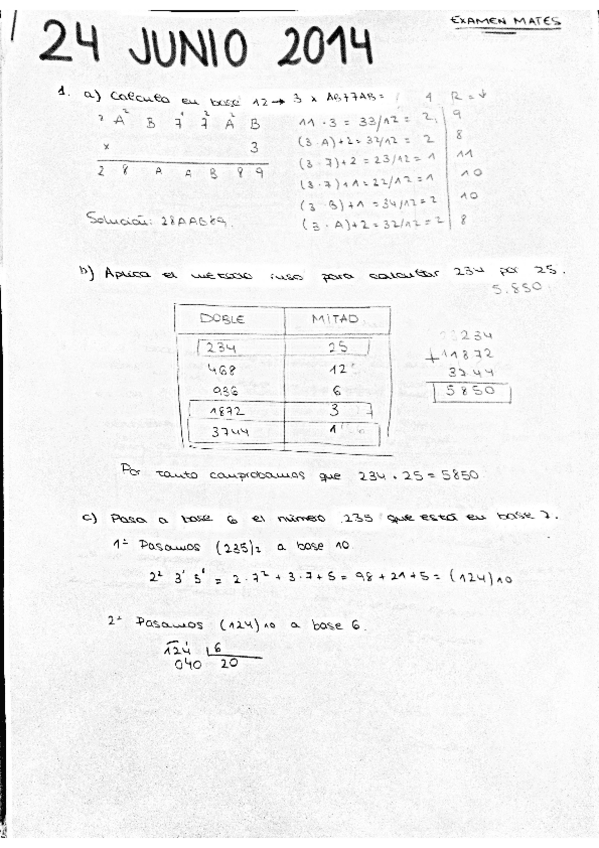 EXAMEN MATES
24 JUNIO 2014
1. a) Calcula en base 12 → 3 x AB77AB =
A² B 7¹ 7² A² B
x 3
2 8 A A B 8 9
11 · 3 = 33/12 = 2 9
(3 · A)+2 = 32/12 = 2 8
(3 · 7)+2 = 23/12 = 1 11
(3 · 7)+1 = 22/12 = 1 10
(3 · B)+1 = 34/12 = 2 10
(3 · A)+2 = 32/12 = 2 8
Solución: 28AAB89.
b) Aplica el método ruso para calcular 234 por 25.
5.850
DOBLE MITAD
234 25
468 12
936 6
1872 3
3744 1
234
+ 1872
3744
5850
Por tanto comprobamos que 234 · 25 = 5850
c) Pasa a base 6 el número 235 que está en base 7.
1º Pasamos (235)₇ a base 10.
2² 3¹ 5⁰ = 2·7² + 3·7+5 = 98+21+5 = (124)10
2º Pasamos (124)10 a base 6.
124 6
040 20